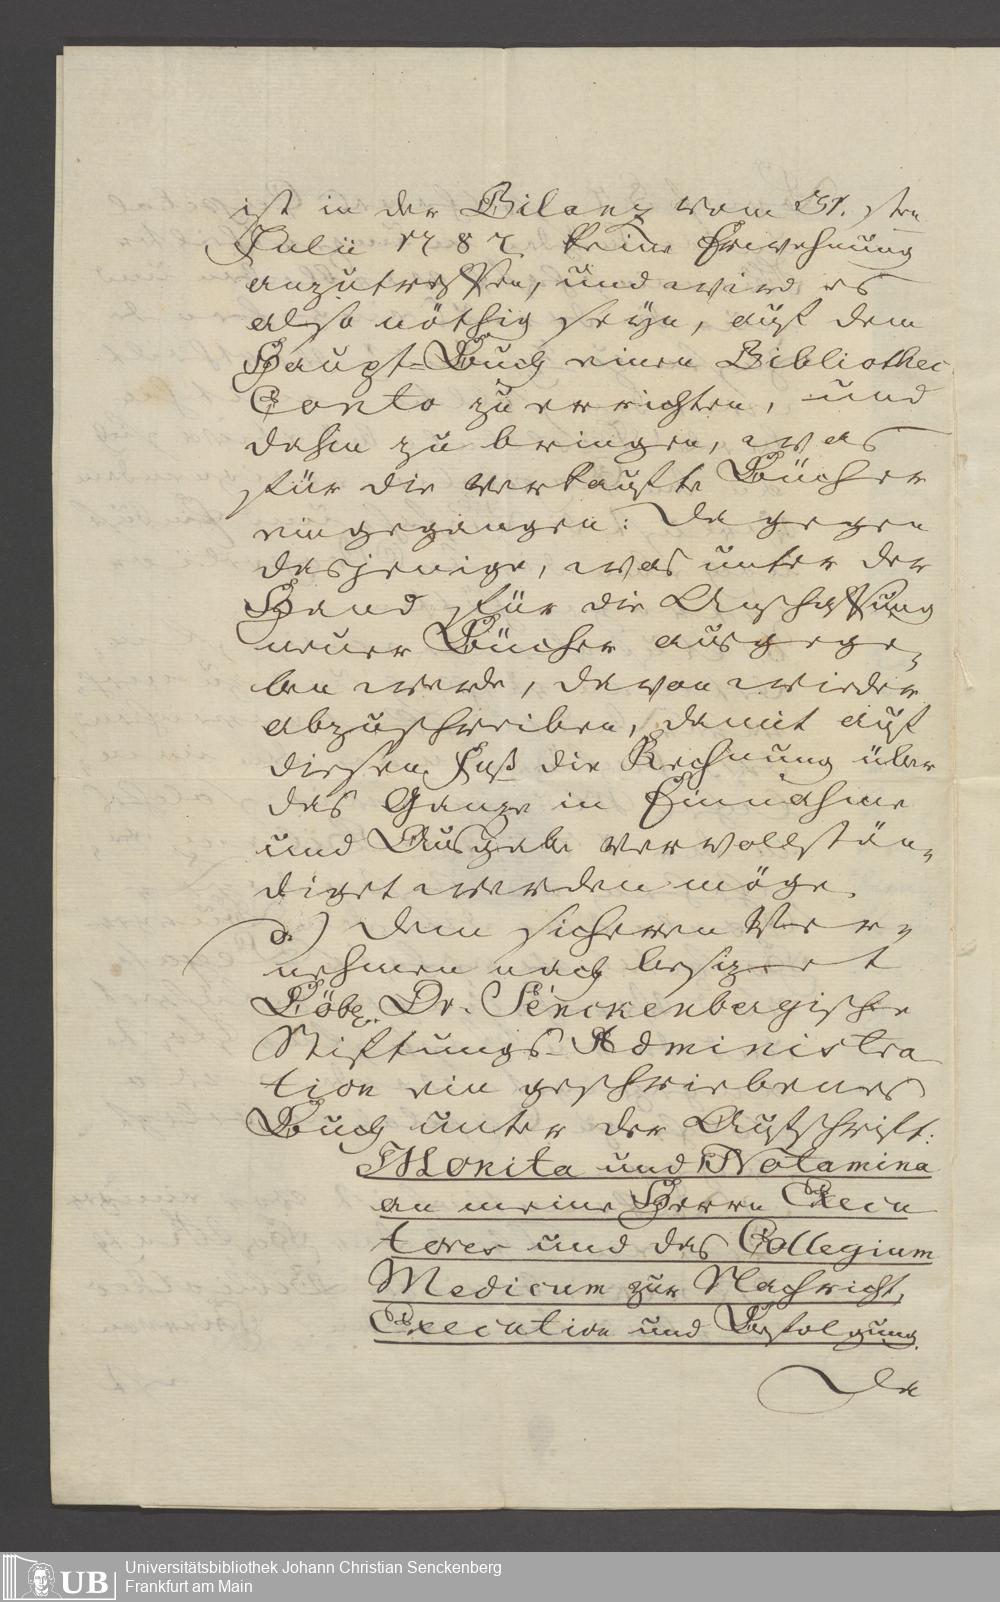 ist in der Bilanz vom 31. sten
Julii 1787 keine Erwehnung
anzutreffen, und wird es
also nöthig seyn, auf dem
Haupt-Buch einen Bibliothec
Conto zu errichten, und
dahin zu bringen, was
für die verkaufte Bücher
eingegangen: Da gegen
dasjenige, was unter der
Hand für die Anschaffung
neuer Bücher ausgege,
ben werde, davon wieder
abzuschreiben, damit auf
diesen Fuß die Rechnung über
das Ganze in Einnahme
und Ausgabe vervollstän,
diget werden möge.
d.) Dem sicheren Ver,
nehmen nach besizet
Löbl. Dr. Senckenbergische
Stiftungs-Administra
tion ein geschriebenes
Buch unter der Aufschrift:
Monita und Notamina
an meine Herrn Execu
tores und das Collegium
Medicum zur Nachricht,
Execution und Befolgung.
Da
UB
Universitätsbibliothek Johann Christian Senckenberg
Frankfurt am Main